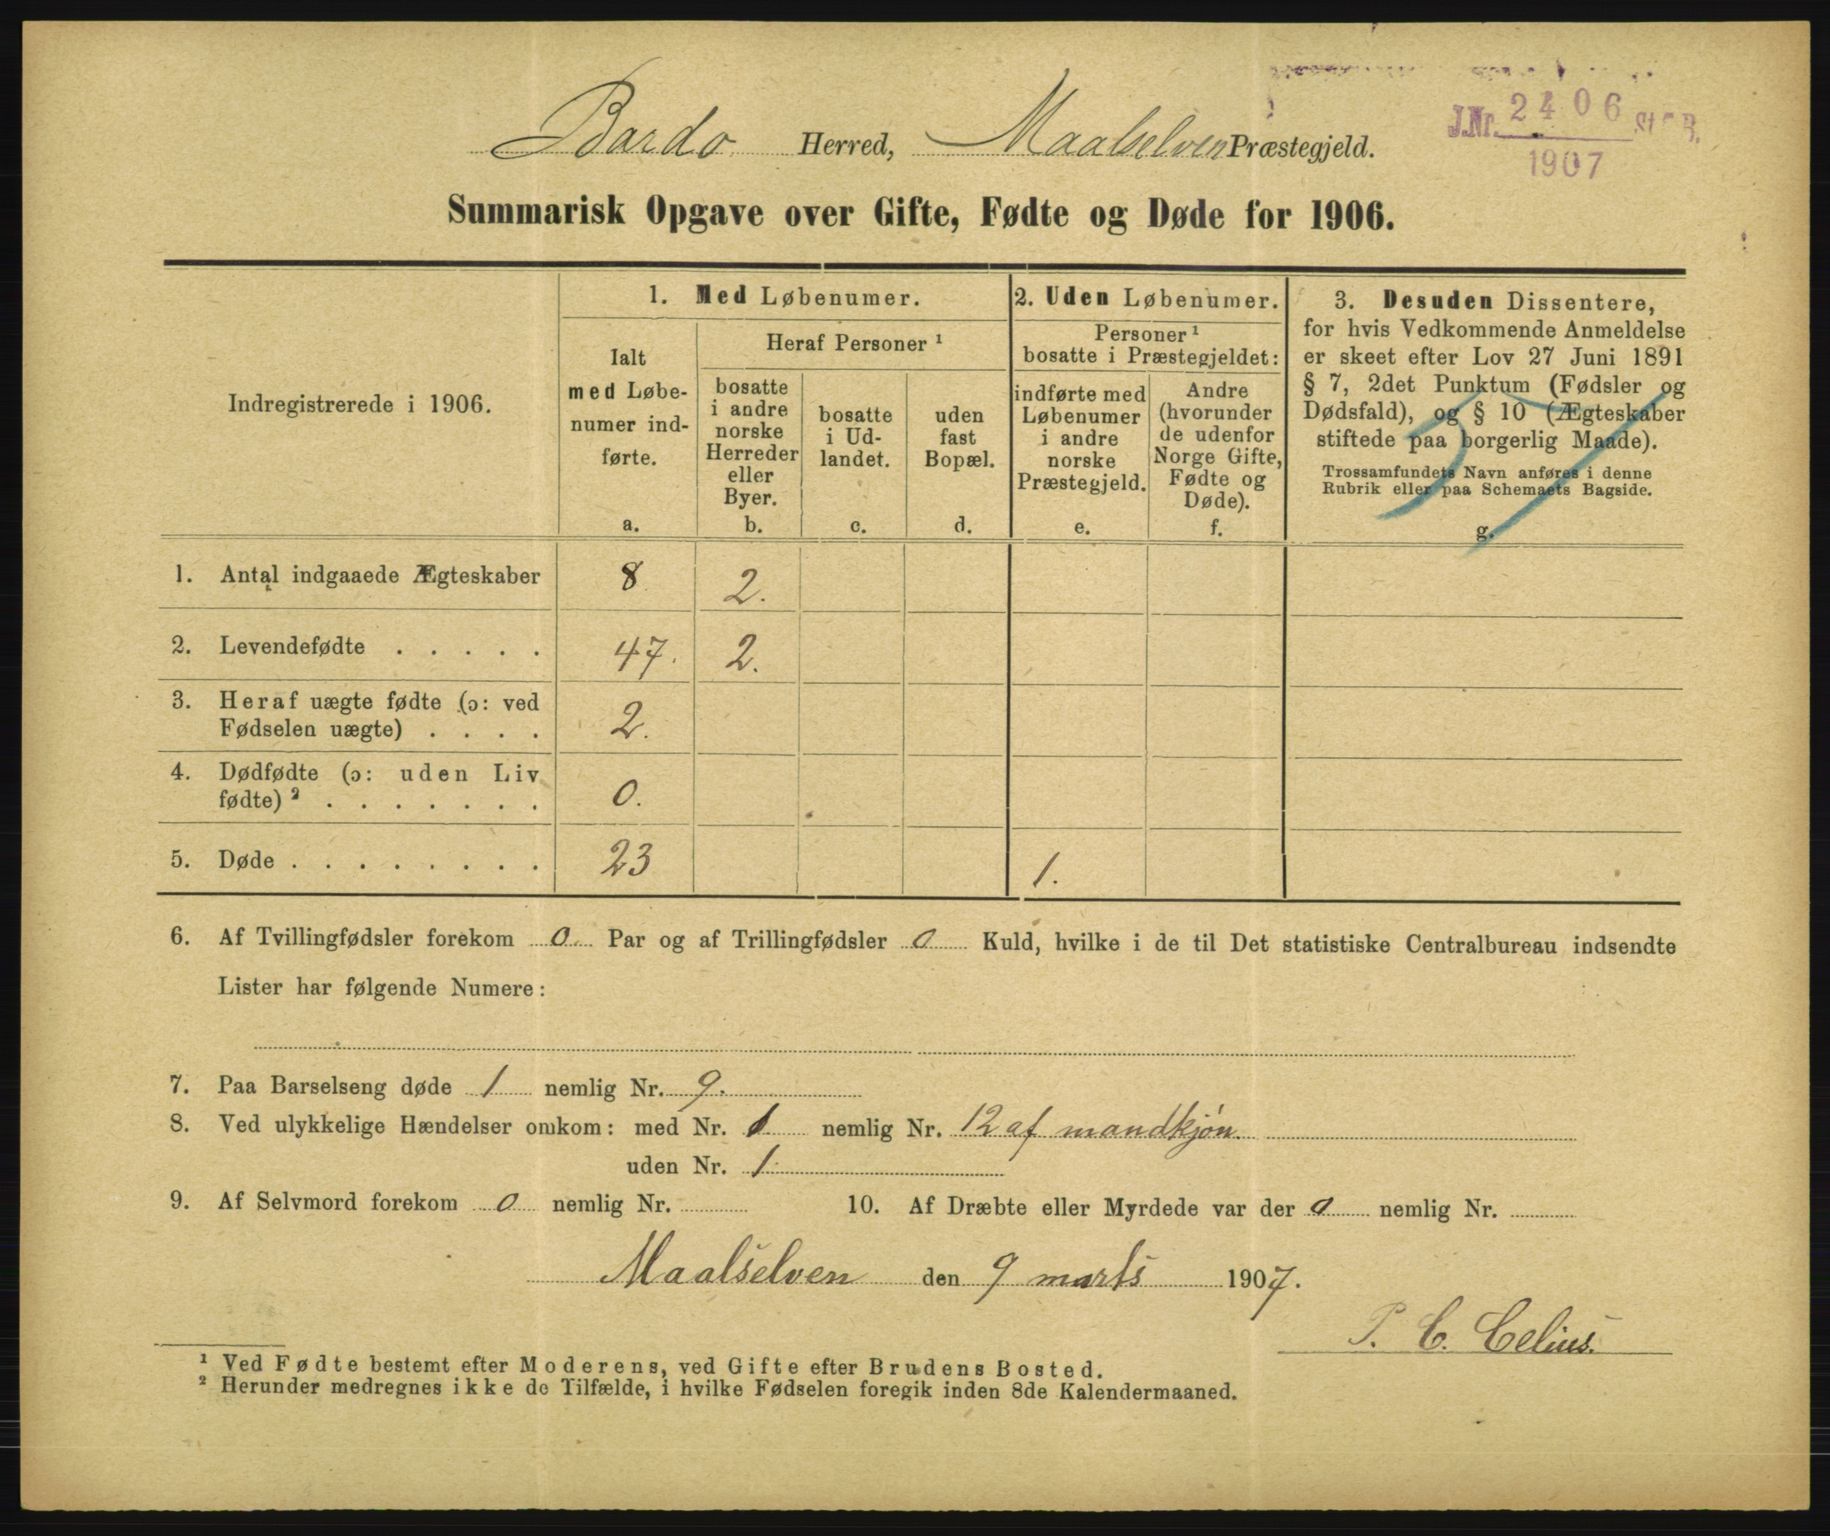 Bardo Herred, Maalselven Præstegjeld.
J.Nr. 2406 St. B.
1907
Summarisk Opgave over Gifte, Fødte og Døde for 1906.
Indregistrerede i 1906.
1. Med Løbenumer.
Ialt
med Løbe-
numer ind-
førte.
a.
Heraf Personer ¹
bosatte
i andre
norske
Herreder
eller
Byer.
b.
bosatte
i Ud-
landet.
c.
uden
fast
Bopæl.
d.
2. Uden Løbenumer.
Personer ¹
bosatte i Præstegjeldet:
indførte med
Løbenumer
i andre
norske
Præstegjeld.
e.
Andre
(hvorunder
de udenfor
Norge Gifte,
Fødte og
Døde).
f.
3. Desuden Dissentere,
for hvis Vedkommende Anmeldelse
er skeet efter Lov 27 Juni 1891
§ 7, 2det Punktum (Fødsler og
Dødsfald), og § 10 (Ægteskaber
stiftede paa borgerlig Maade).
Trossamfundets Navn anføres i denne
Rubrik eller paa Schemaets Bagside.
g.
1. Antal indgaaede Ægteskaber 8 2.
2. Levendefødte . . . . . 47. 2.
3. Heraf uægte fødte (ɔ: ved
Fødselen uægte) . . . . 2.
4. Dødfødte (ɔ: uden Liv
fødte) ² . . . . . . . 0.
5. Døde . . . . . . . . 23 1.
6. Af Tvillingfødsler forekom 0 Par og af Trillingfødsler 0 Kuld, hvilke i de til Det statistiske Centralbureau indsendte
Lister har følgende Numere:
7. Paa Barselseng døde 1 nemlig Nr. 9.
8. Ved ulykkelige Hændelser omkom: med Nr. 1 nemlig Nr. 12 af mandkjøn.
uden Nr. 1.
9. Af Selvmord forekom 0 nemlig Nr.
10. Af Dræbte eller Myrdede var der 0 nemlig Nr.
Maalselven den 9 marts 1907.
P. C. Celius.
¹ Ved Fødte bestemt efter Moderens, ved Gifte efter Brudens Bosted.
² Herunder medregnes ikke de Tilfælde, i hvilke Fødselen foregik inden 8de Kalendermaaned.